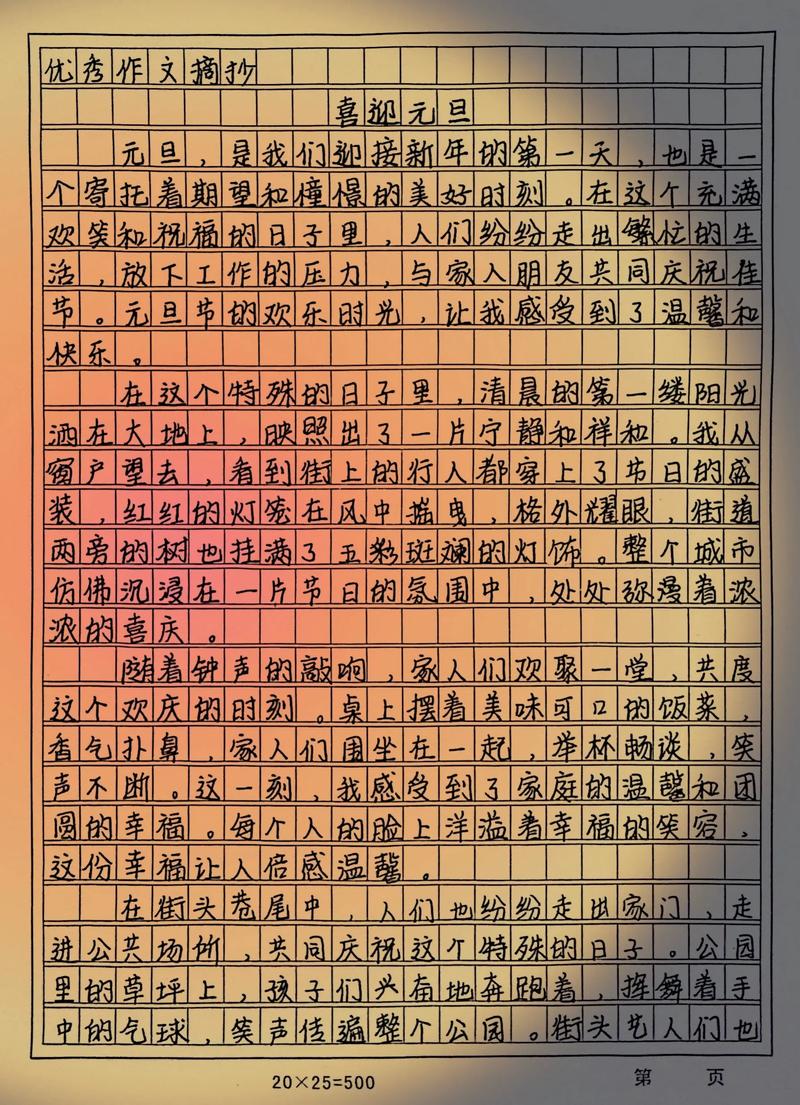 优秀作文摘抄
喜迎元旦
元旦，是我们迎接新年的第一天，也是一
个寄托着期望和憧憬的美好时刻。在这个充满
欢笑和祝福的日子里，人们纷纷走出繁忙的生
活，放下工作的压力，与家人朋友共同庆祝佳
节。元旦节的欢乐时光，让我感受到了温馨和
快乐。
在这个特殊的日子里，清晨的第一缕阳光
洒在大地上，映照出了一片宁静和祥和。我从
窗户望去，看到街上的行人都穿上了节日的盛
装，红红的灯笼在风中摇曳，格外耀眼，街道
两旁的树也挂满了五彩斑斓的灯饰。整个城市
仿佛沉浸在一片节日的氛围中，处处弥漫着浓
浓的喜庆。
随着钟声的敲响，家人们欢聚一堂，共度
这个欢庆的时刻。桌上摆着美味可口的饭菜，
香气扑鼻，家人们围坐在一起，举杯畅谈，笑
声不断。这一刻，我感受到了家庭的温馨和团
圆的幸福。每个人的脸上洋溢着幸福的笑容，
这份幸福让人倍感温馨。
在街头巷尾中，人们也纷纷走出家门，走
进公共场所，共同庆祝这个特殊的日子。公园
里的草坪上，孩子们兴奋地奔跑着，挥舞着手
中的气球，笑声传遍整个公园。街头艺人们也
20×25=500
第 页